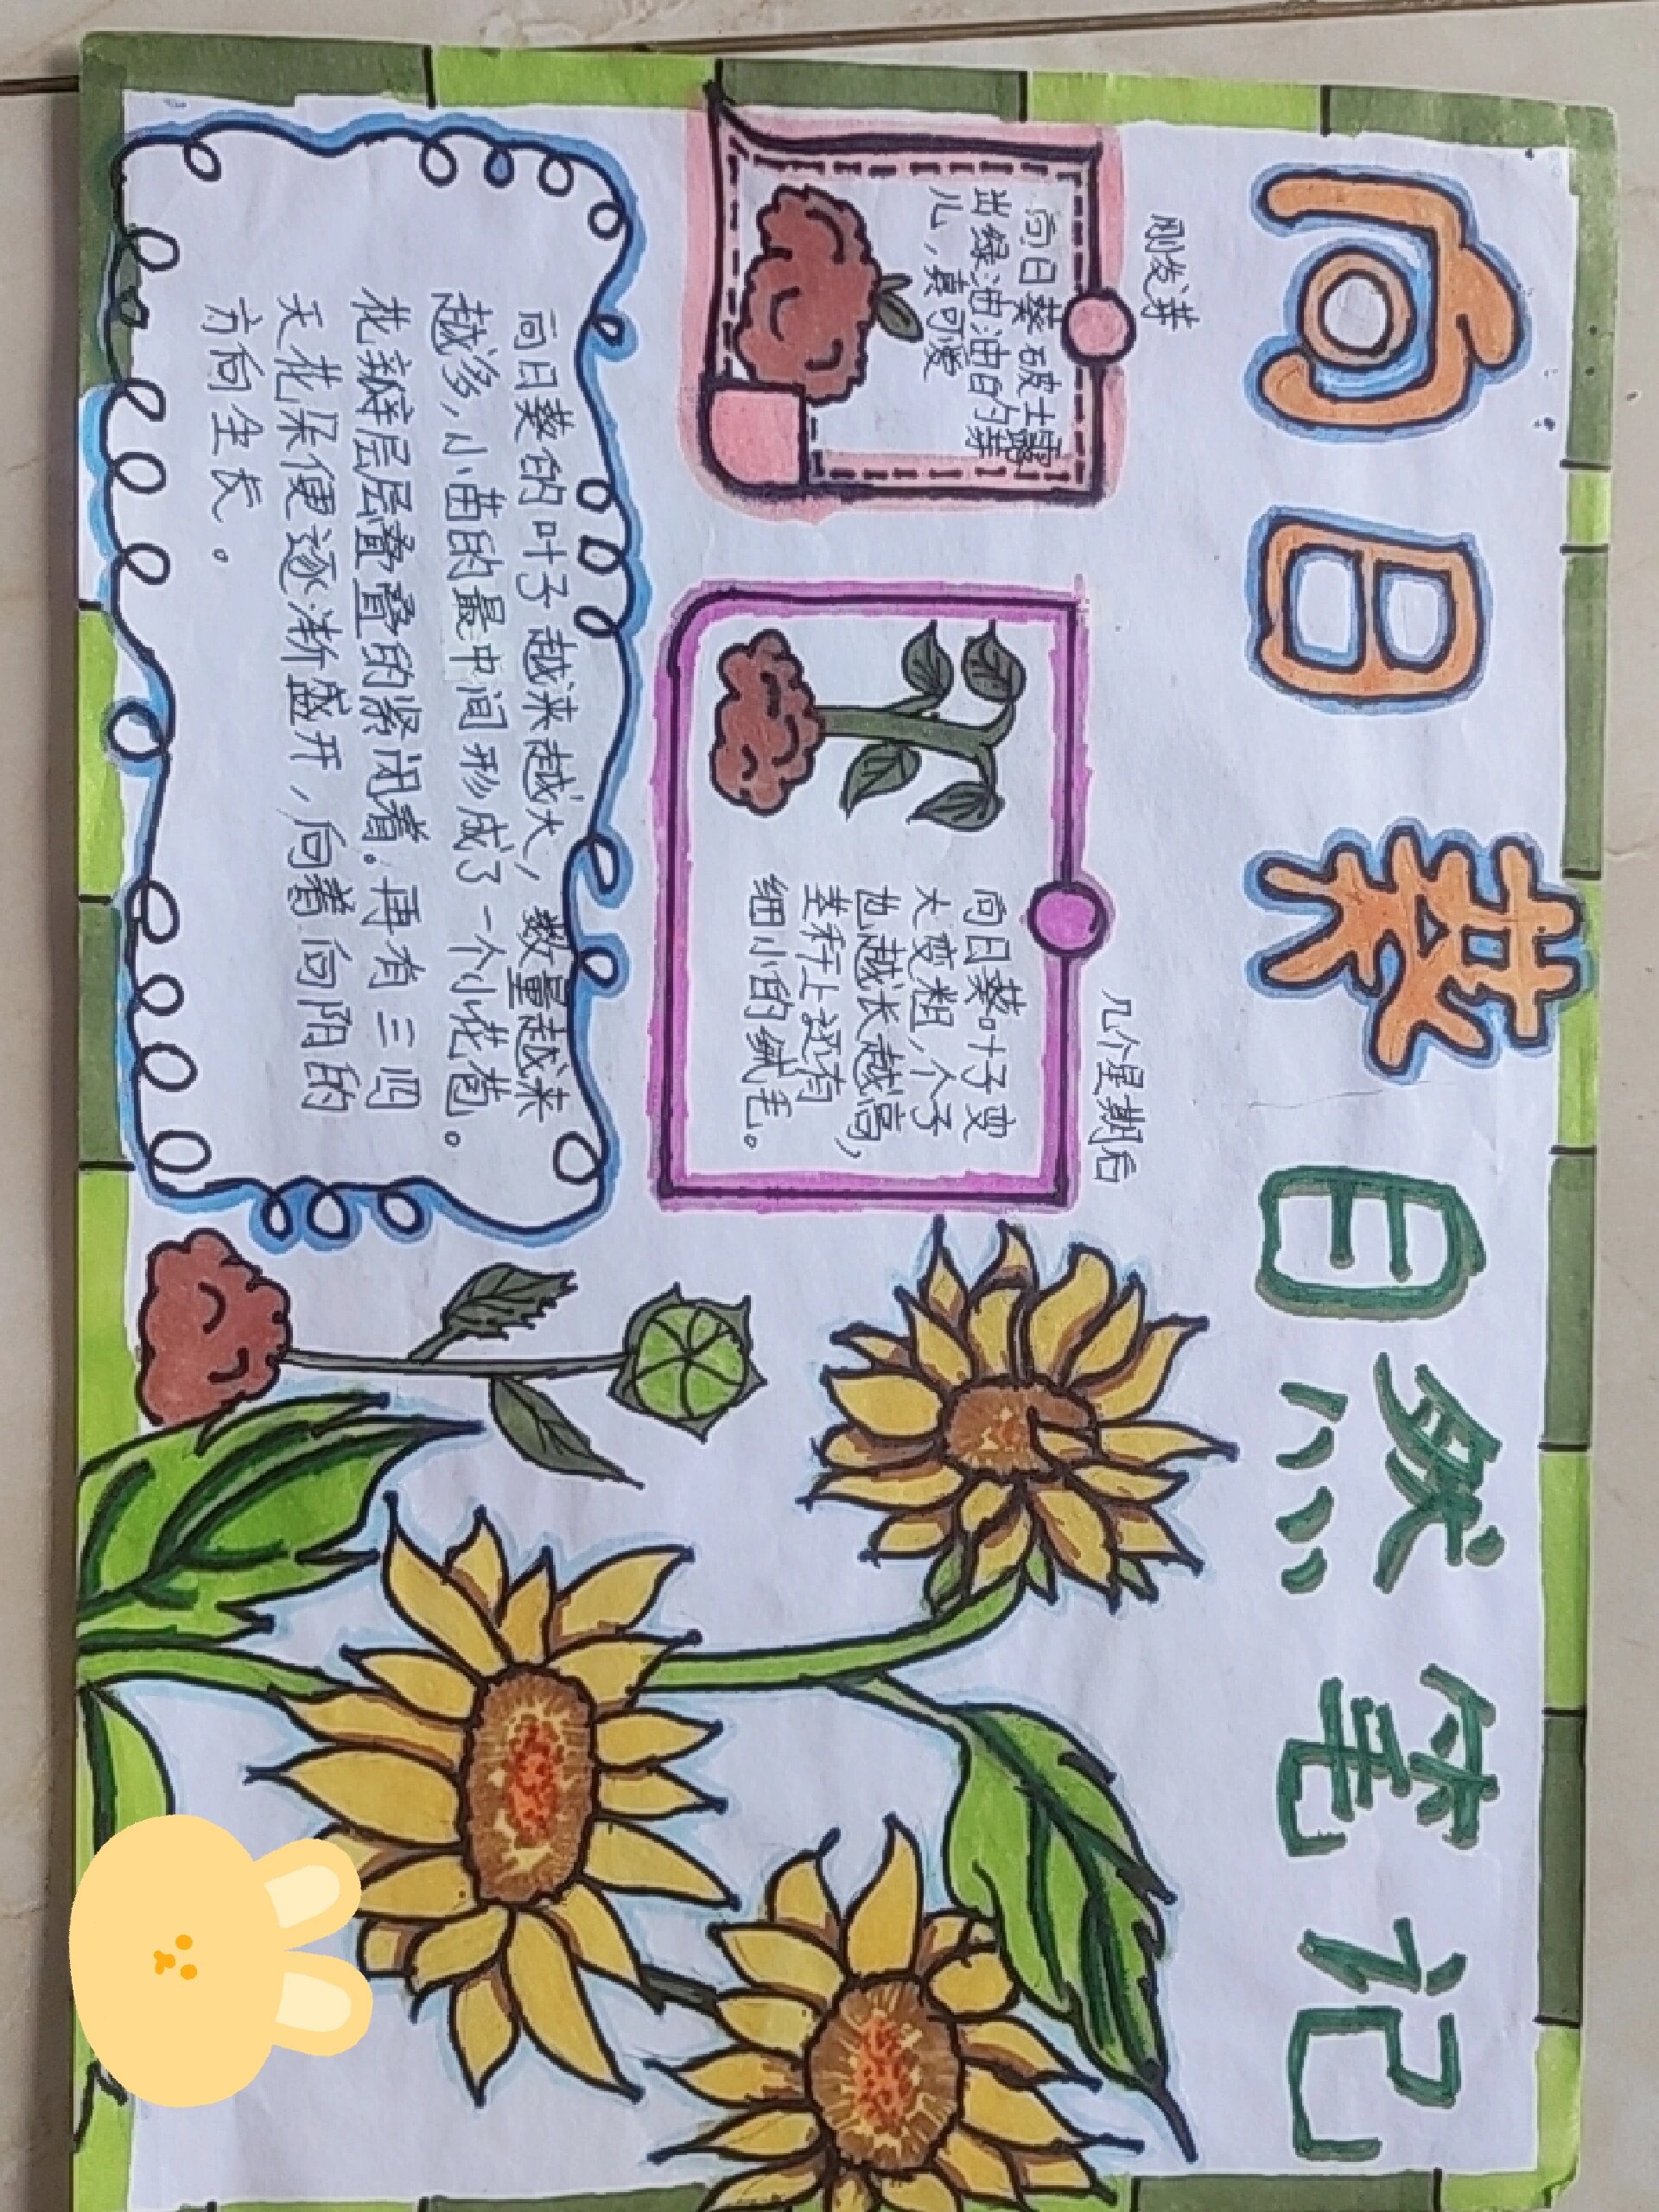 向日葵自然笔记
刚发芽
向日葵破土露
出绿油油的芽
儿，真可爱
几个星期后
向日葵叶子变
大变粗，个子
也越长越高，
茎秆上还有
细小的绒毛。
向日葵的叶子越来越大，数量越来
越多，小苗的最中间形成了一个小花苞。
花瓣层层叠叠的紧闭着。再有三四
天花朵便逐渐盛开，向着向阳的
方向生长。